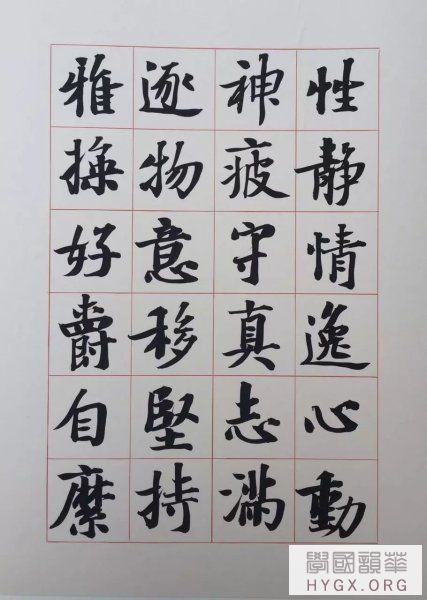 性靜情逸心動
神疲守真志滿
逐物意移堅持
雅操好爵自縻
華韻國學
HYGX.ORG